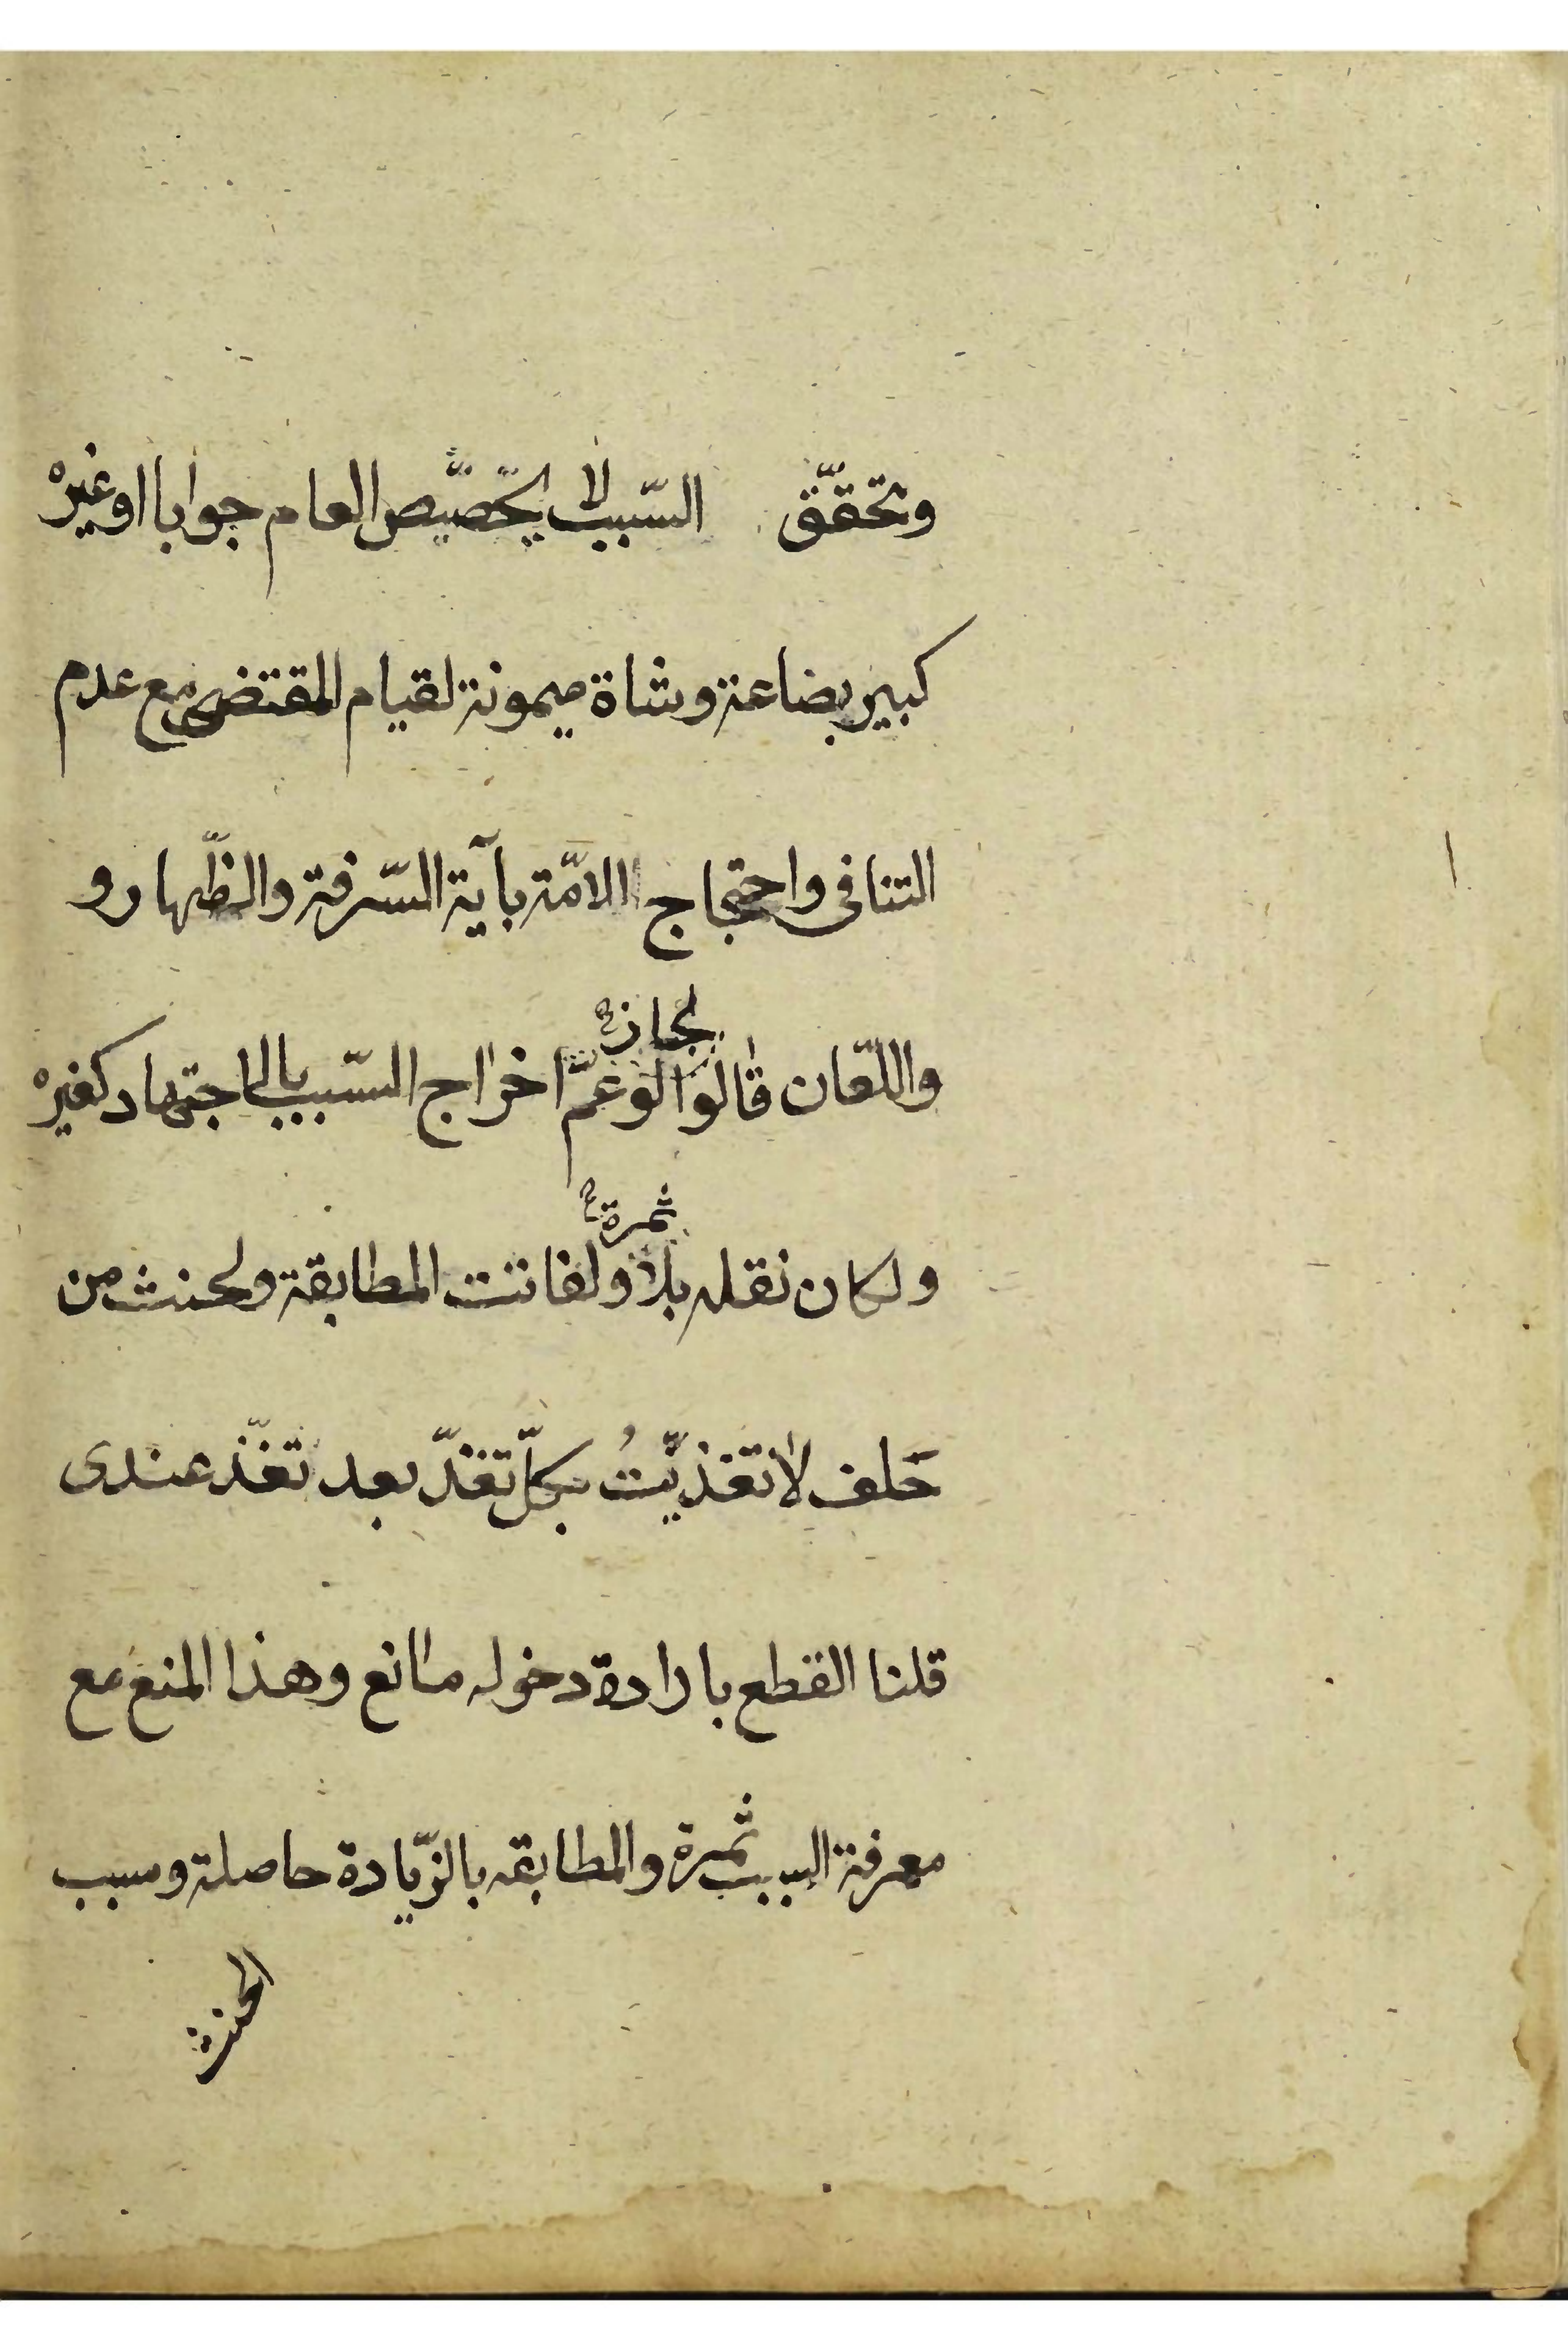 وتحقق السّبب لا يخصّص العام جوابا او غيره
كبير بضاعة وشاة ميمونة لقيام المقتضى مع عدم
التنافى واحتجاج الامّة بآية السّرقة والظّهار و
واللّعان قالوا لو عمّ لجاز اخراج السّبب بالاجتهاد كغيره
ولكان نقله بلا ثمرة ولفاتت المطابقة ولحنث من
حَلف لا تغذّيتُ بكلّ تغذّ بعد تغذّ عندى
قلنا القطع بارادة دخوله مانع وهذا المنع مع
معرفة السبب ثمرة والمطابقه بالزّيادة حاصلة وسبب
الحنث